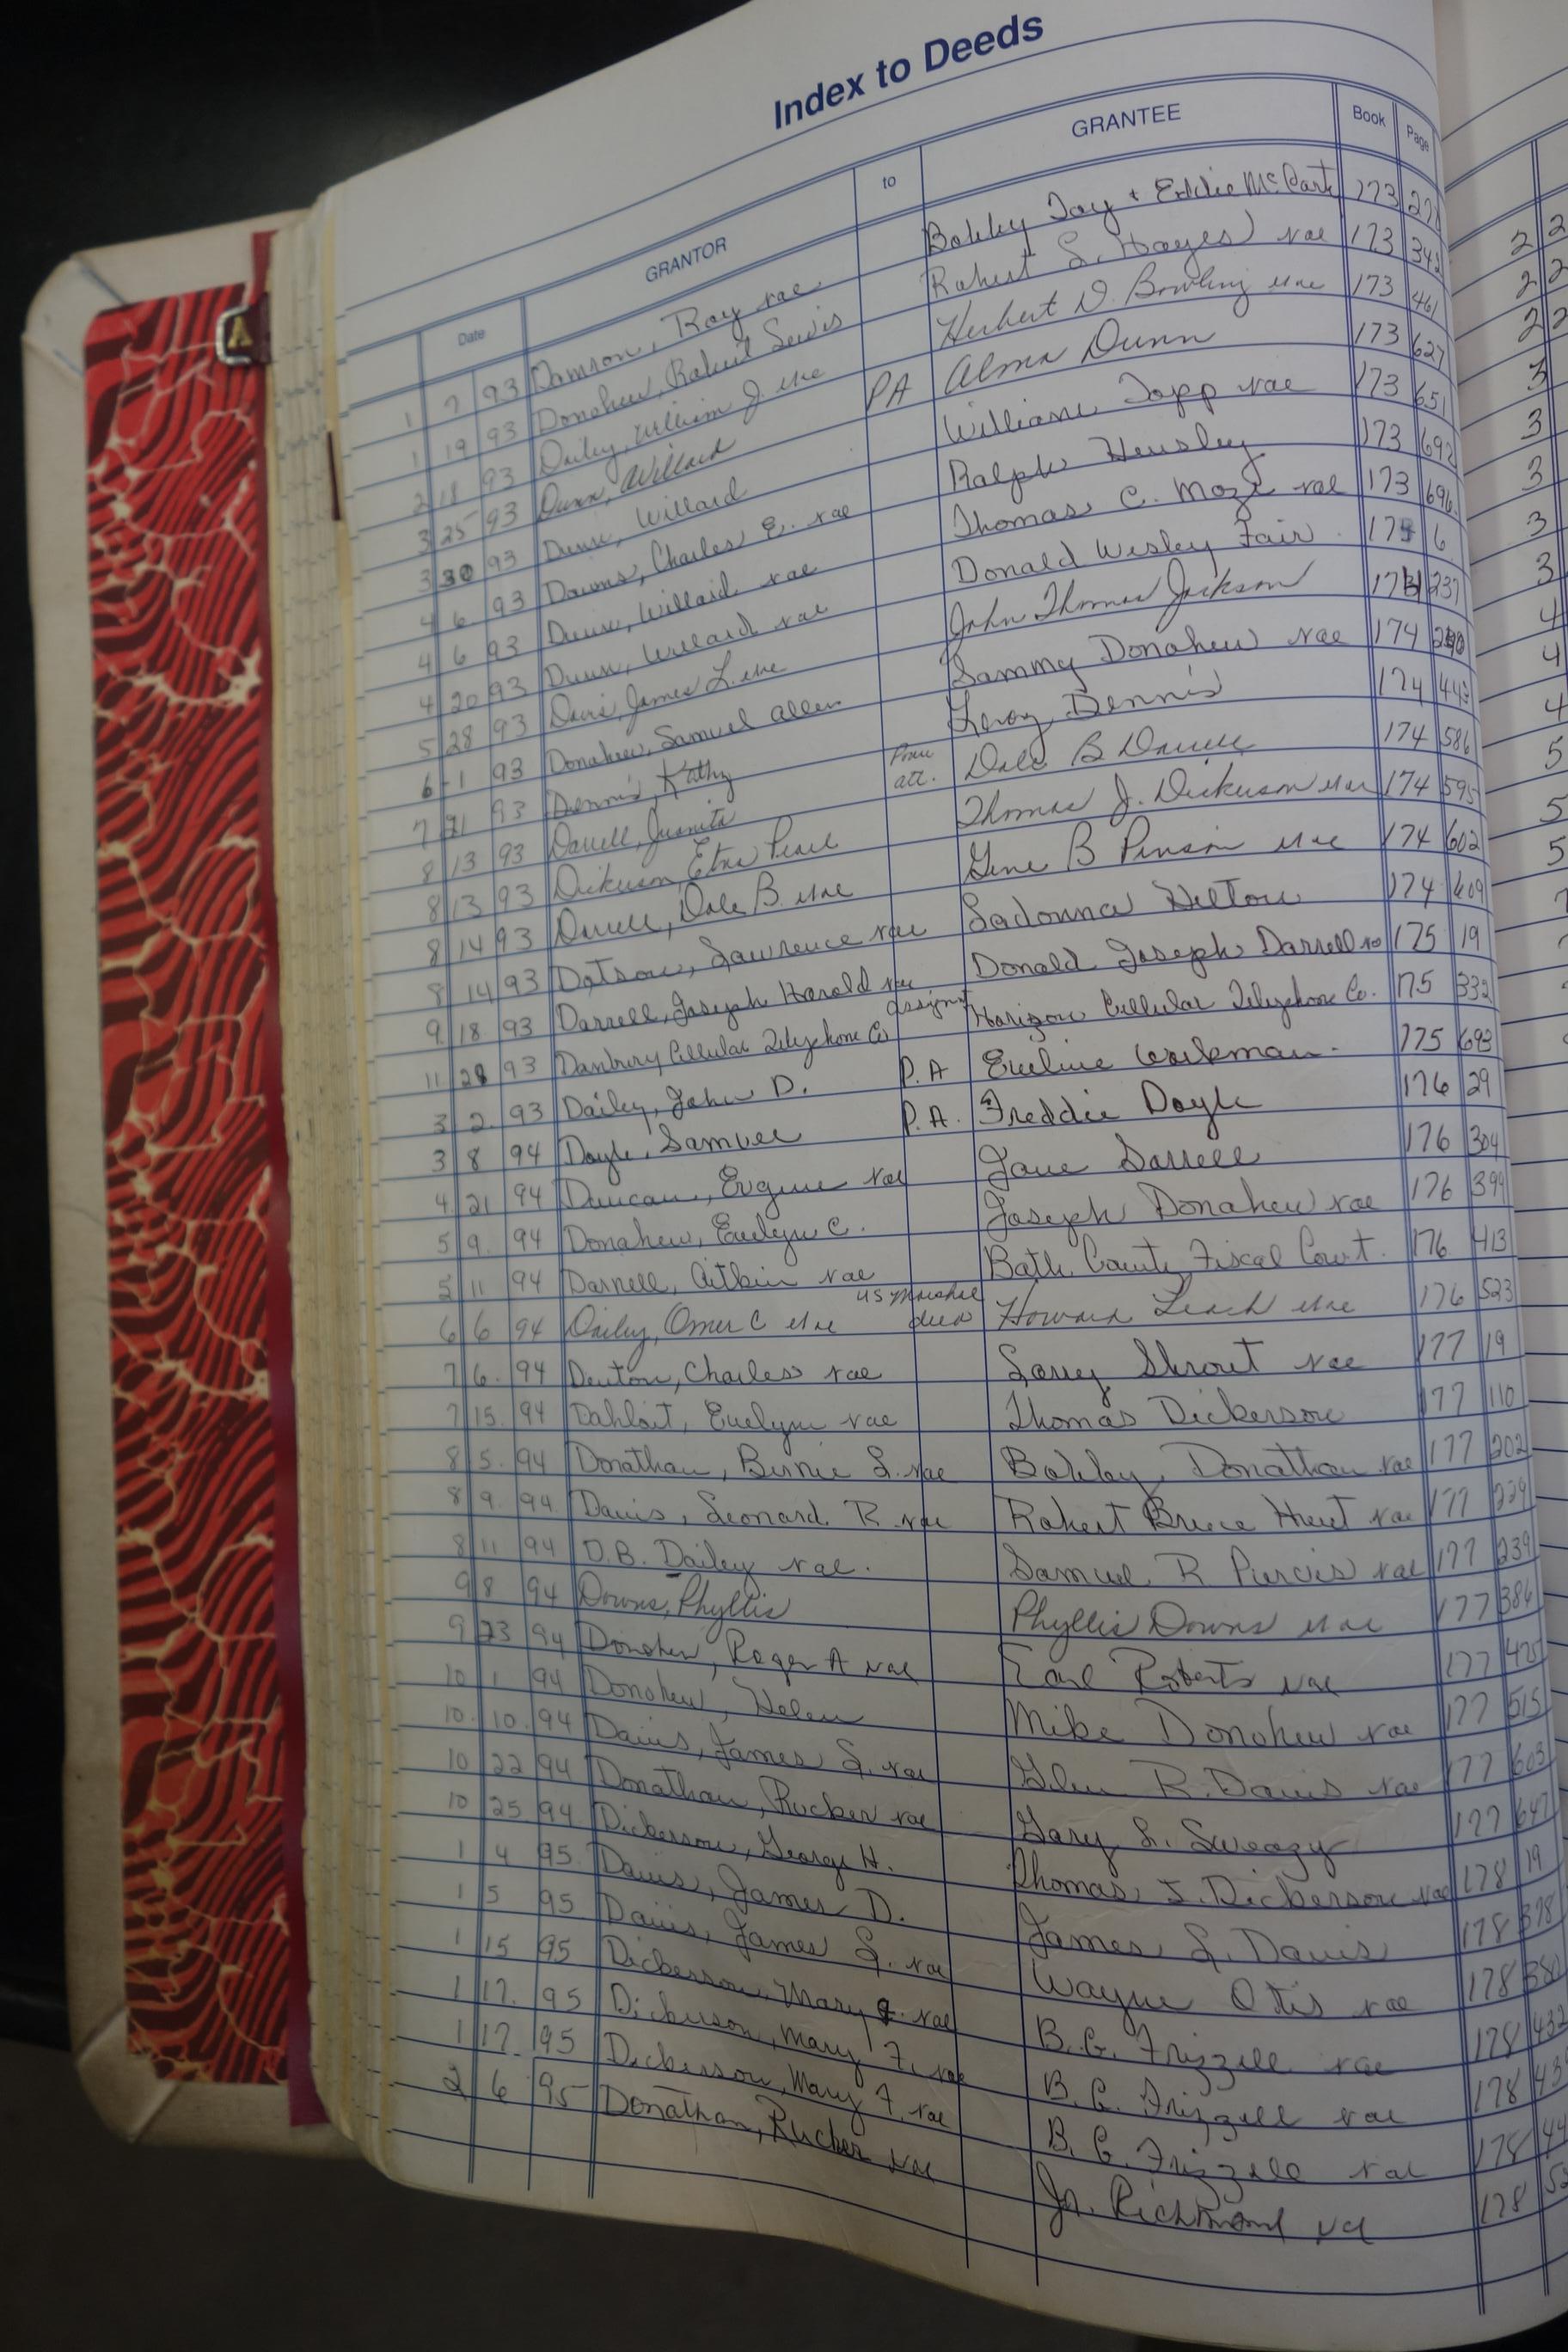 Index to Deeds
Date GRANTOR to GRANTEE Book Page
1 7 93 Damron, Ray vae Bobby Jay + Eddie McCarty 173
1 19 93 Donohew, Robert Lewis Robert L. Hayes vae 173 342
2 18 93 Dailey, William J. etux Herbert D. Bowling etux 173 461
3 25 93 Dunn, Willard PA Alma Dunn 173 627
3 30 93 Dunn, Willard William Topp vae 173 651
4 6 93 Downs, Charles E. vae Ralph Hensley 173 692
4 6 93 Dunn, Willard vae Thomas C. Moze vae 173 696
4 20 93 Dunn, Willard vae Donald Wesley Fair 6
5 28 93 Davis, James L. etux John Thomas Jackson 237
6 1 93 Donahew, Samuel Allen Sammy Donahew vae 174
7 21 93 Dennis, Kathy Leroy Dennis 174 443
8 13 93 Darrell, Juanita Pow. att. Dale B Darrell 174 586
8 13 93 Dickerson, Etna Pearl Thomas J. Dickerson etux 174 595
8 14 93 Darrell, Dale B etux Gene B Pinson etux 174 602
8 14 93 Dotson, Lawrence vae Ladonna Helton 174 609
9 18 93 Darrell, Joseph Harold vae Donald Joseph Darrell 175 19
11 28 93 Danbury Cellular Telephone Co assignt Horizon Cellular Telephone Co. 175 332
3 2 93 Dailey, John D. P.A Eveline Workman 175 693
3 8 94 Doyle, Samuel P.A. Freddie Doyle 176 29
4 21 94 Duncan, Eugene vae Jane Darrell 176 304
5 9 94 Donahew, Evelyn C. Joseph Donahew vae 176 399
5 11 94 Darnell, Aitkin vae Bath County Fiscal Court. 176 413
6 6 94 Dailey, Omer C etux US Marshal deed Howard Leach etux 176 523
7 6 94 Denton, Charles vae Larry Shrout vae 177 19
7 15 94 Dahloit, Evelyn vae Thomas Dickerson 177 110
8 5 94 Donathan, Bernie L. vae Bobby Donathan vae 177 202
8 9 94 Davis, Leonard R vae Robert Bruce Hunt vae 177 229
8 11 94 D.B. Dailey vae. Samuel R Purvis vae 177 239
9 8 94 Downs, Phyllis Phyllis Downs etux 177 386
9 23 94 Donohew, Roger A vae Earl Roberts vae 177 475
10 1 94 Donohew, Helen Mike Donohew vae 177 515
10 10 94 Davis, James L. vae Glen R. Davis vae 177 603
10 22 94 Donathan, Rucker vae Gary L. Sweazy 177 647
10 25 94 Dickerson, George H. Thomas J. Dickerson vae 178 19
1 4 95 Davis, James D. James L. Davis 178 378
1 5 95 Davis, James L. vae Wayne Otis vae 178 380
1 15 95 Dickerson, Mary F. vae B.C. Frizzell vae 178 432
1 17 95 Dickerson, Mary F. vae B.C. Frizzell vae 178
1 17 95 Dickerson, Mary F. vae B.C. Frizzell vae 178
2 6 95 Donathan, Rucker vae Jr. Richmond vae 178